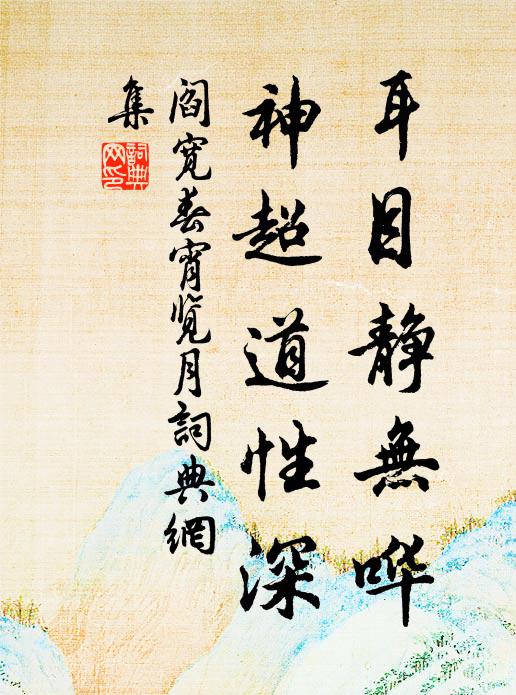 耳目静無哗
神超道性深
阎寬春宵览月詞典網
集
詞典
网印